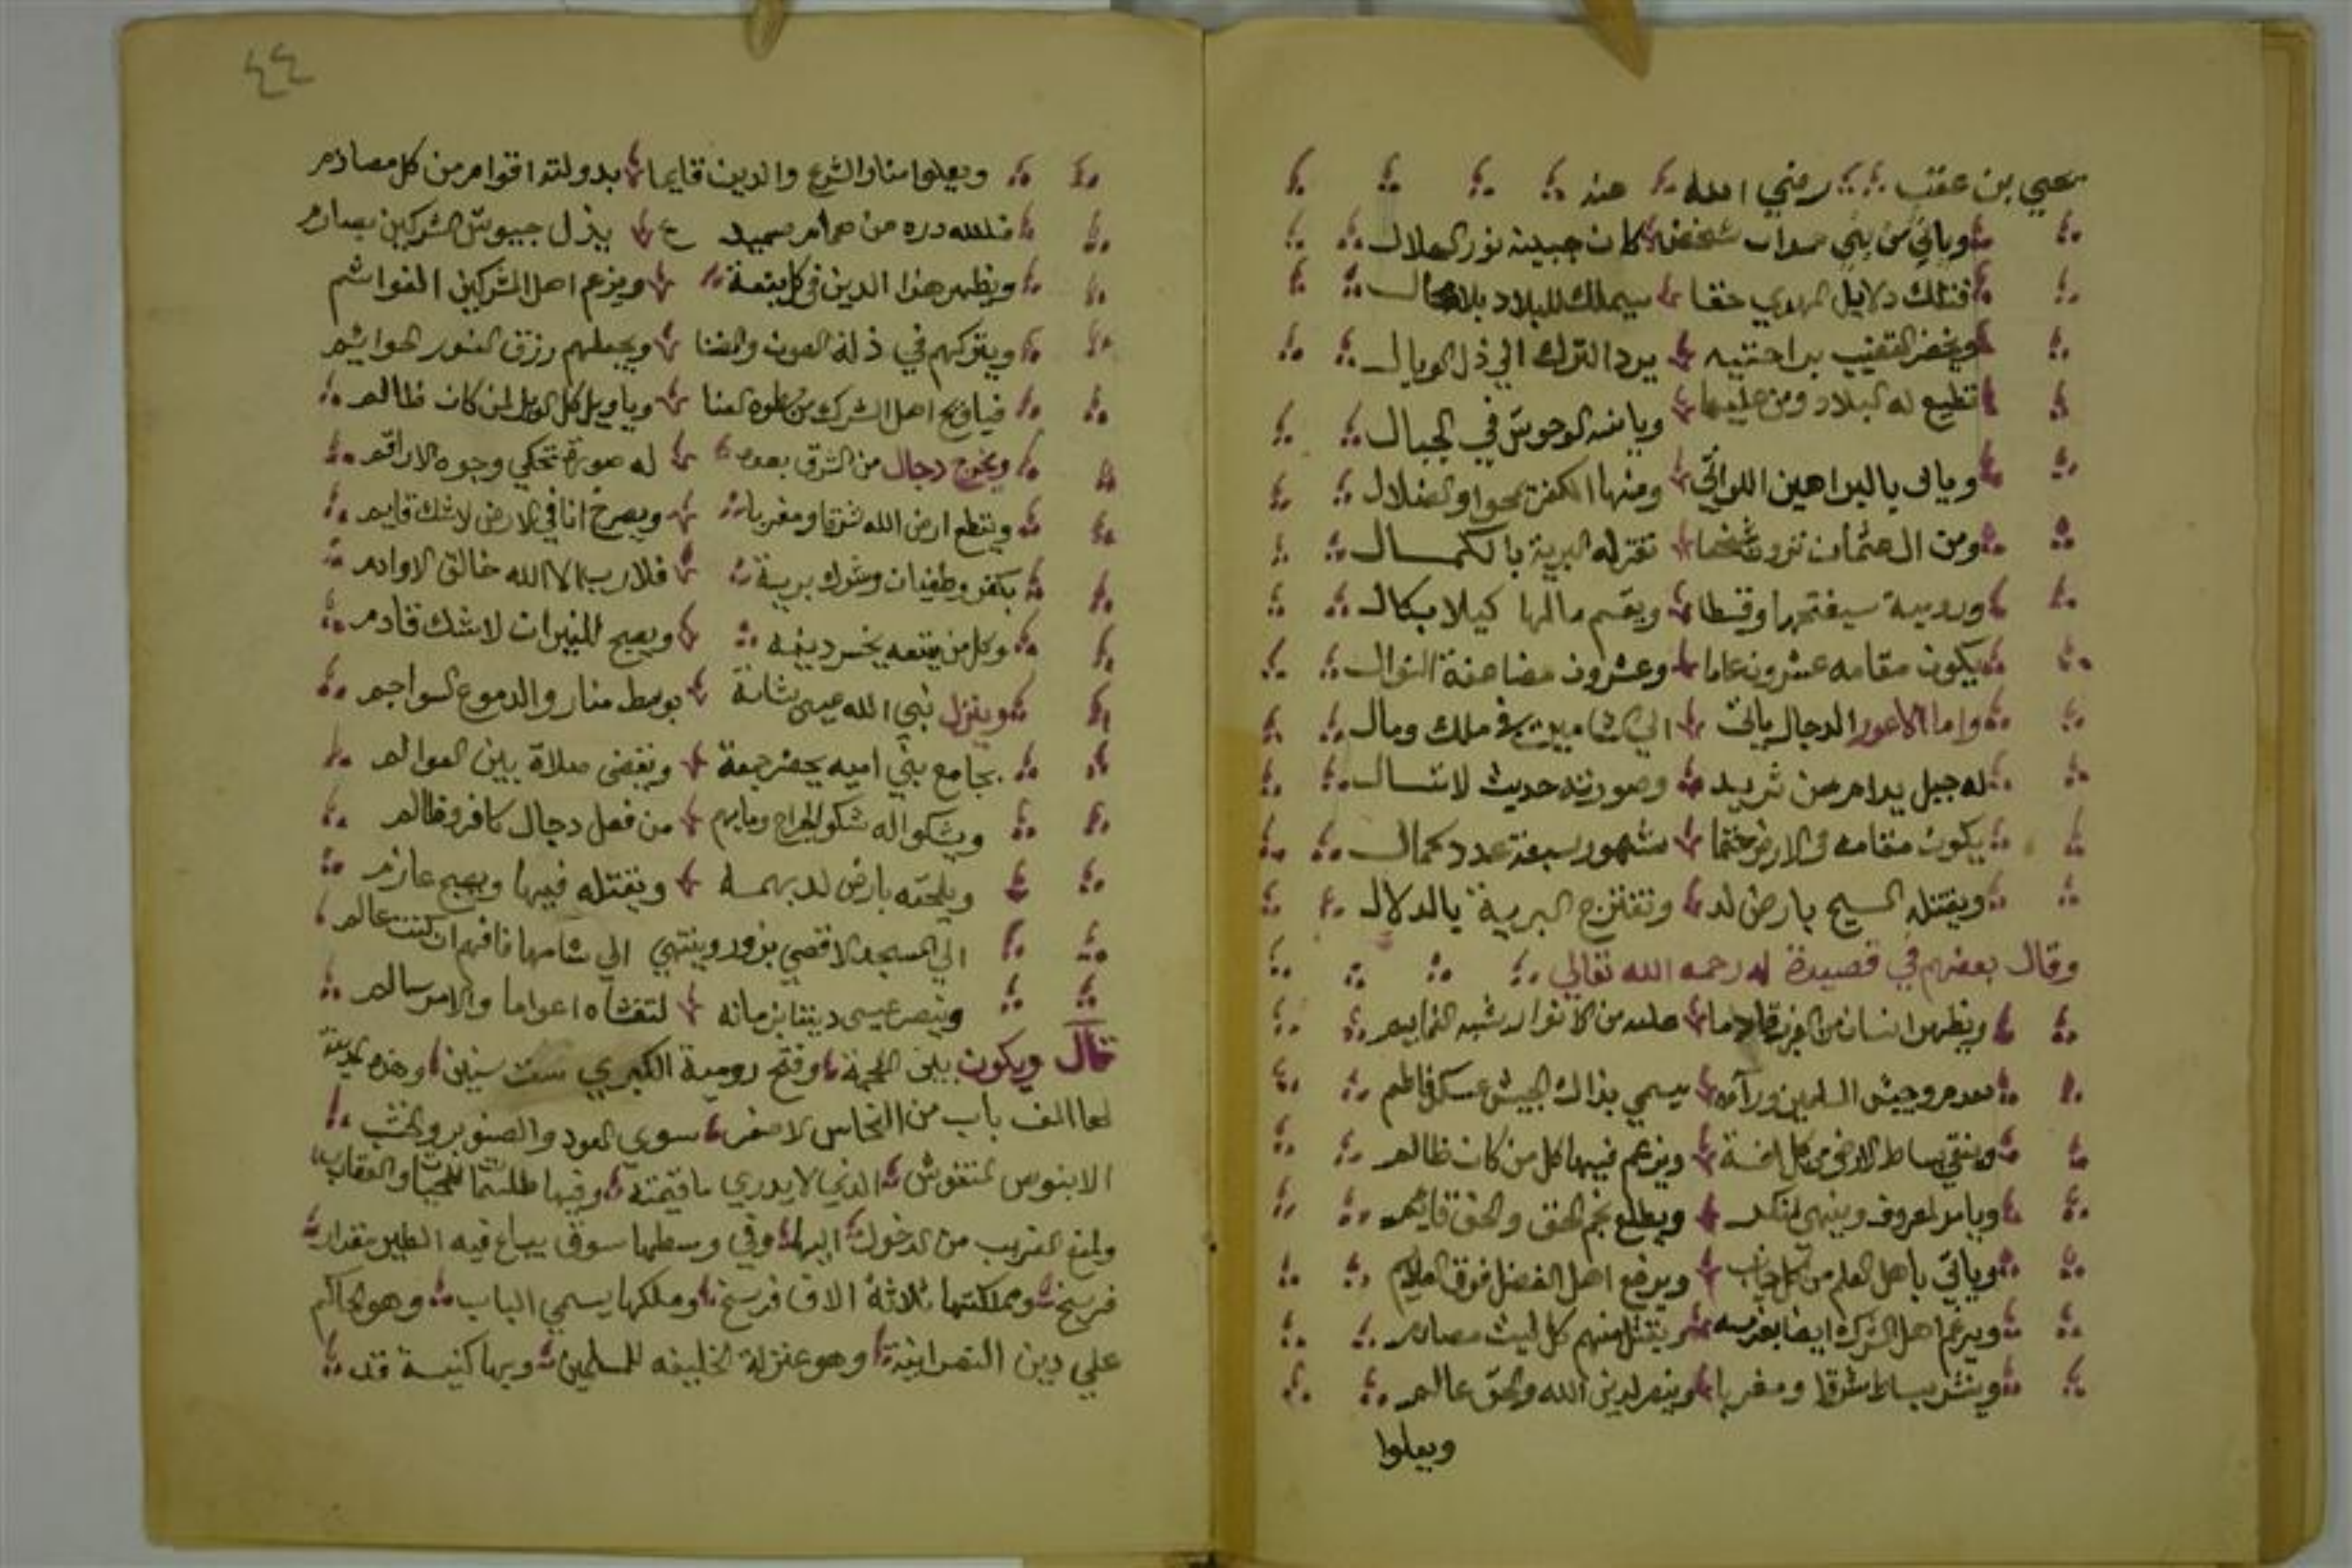 يحيي بن عقب رضي الله عنه
وياتي من بني شخص كان جبينه نور الهلال
فتلك دلايل المهدي حقا سيملك للبلاد بلا محال
ويخضر القضيب براحتيه يرد الترك الي ذل الوبال
تطيع له البلاد ومن عليها ويانسه الوحوش في الجبال
وياتي بالبراهين اللواتي ومنها الكفرة يمحوا والضلال
ومن تقر له البرية بالكمال
ورومية سيفتحها وقسطا ويقسم مالها كيلا بكال
يكون مقامه عشرون عاما وعشرون مضاعفة النوال
واما الاعور الدجال ياتي الي في ملك ومال
له جبل يدا من ثريد وصورته حديث لا
يكون مقامه في الارض حتما شهور سبعة عدد كمال
ويقتله المسيح بارض لد وتفترج البرية بالدلال
وقال بعضهم في قصيدة له رحمه الله تعالي
ويظهر انسان من الغرب قادما عليه من الانوار شبه الغمايم
وجيش المسلمين ورآه يسمي بذاك الجيش
وينقي بساط الارض من كل ويزعم فيها كل من كان ظالم
ويامر المعروف وينهي لمنكر ويطلع نجم الحق والحق قايم
وياتي باهل العلم من كل جانب ويرفع اهل الفضل فوق
ويرغم اهل الشرك ايضا بعزمه يقتل منهم كل ليث مصادم
وينشر بساط شرقا ومغربا وينصر لدين الله والحق عالم
ويعلوا
٤٤
ويعلوا منار الشرع والدين قايما بدولته اقوام من كل مصادم
فلله دره من همام ينزل جيوش المشركين بصارم
ويظهر هذا الدين في كل بقعة ويزعم اهل المشركين الغواشم
ويتركهم في ذلة الهون والفنا ويجعلهم رزق النسور الحوايم
فياويح اهل الشرك من سطوه القنا وياويل كل الويل لمن كان ظالم
ويخرج دجال من الشرق بعده له صورة تحكي وجوه الاراقم
ويقطع ارض الله شرقا ومغربا ويصرخ انا في الارض لا شك قايم
بكفر وطغيان وشرك برية فلا رب الا الله خالق الاوادم
وكل من يتبعه يخسر دينه ويصبح للنيران لا شك قادم
وينزل نبي الله عيسى بشامة بوسط منار والدموع السواجم
بجامع بني اميه يحضر جمعة ويقضى صلاة بين العوالم
ويشكوا له شكو الجراح ومابهم من فعل دجال كافر وظالم
ويلحقه بارض لد بهمة ويقتله فيها ويصبح عازم
الي المسجد الاقصي يزور وينتهي الي شامها فافهم ان كنت عالم
وينصر عيسى ديننا بزمانه اعواما والامر سالم
قال ويكون بين الملحمة وفتح رومية الكبري ست سنين وهذه المدينة
لها الف باب من النحاس الاصفر سوي العود والصنوبر والخشب
الابنوس المنقوش الذي لا يدري ما قيمته وفيها طلسما للحيات والعقارب
ولمنع الغريب من الدخول اليها وفي وسطها سوق يباع فيه الطير مقدار
فرسخ ومملكتها ثلاثة الاف فرسخ وملكها يسمي الباب وهو الحاكم
علي دين النصرانية وهو عنزلة الخليفه للمسلمين وبها كنيسة قد